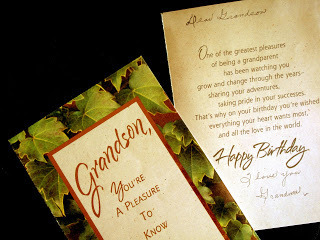 Grandson,
You're
A Pleasure
To
Know
Dear Grandson
One of the greatest pleasures
of being a grandparent
has been watching you
grow and change through the years-
sharing your adventures,
taking pride in your successes.
That's why on your birthday you're wished
everything your heart wants most,
and all the love in the world.
Happy Birthday
I love you
Grandma